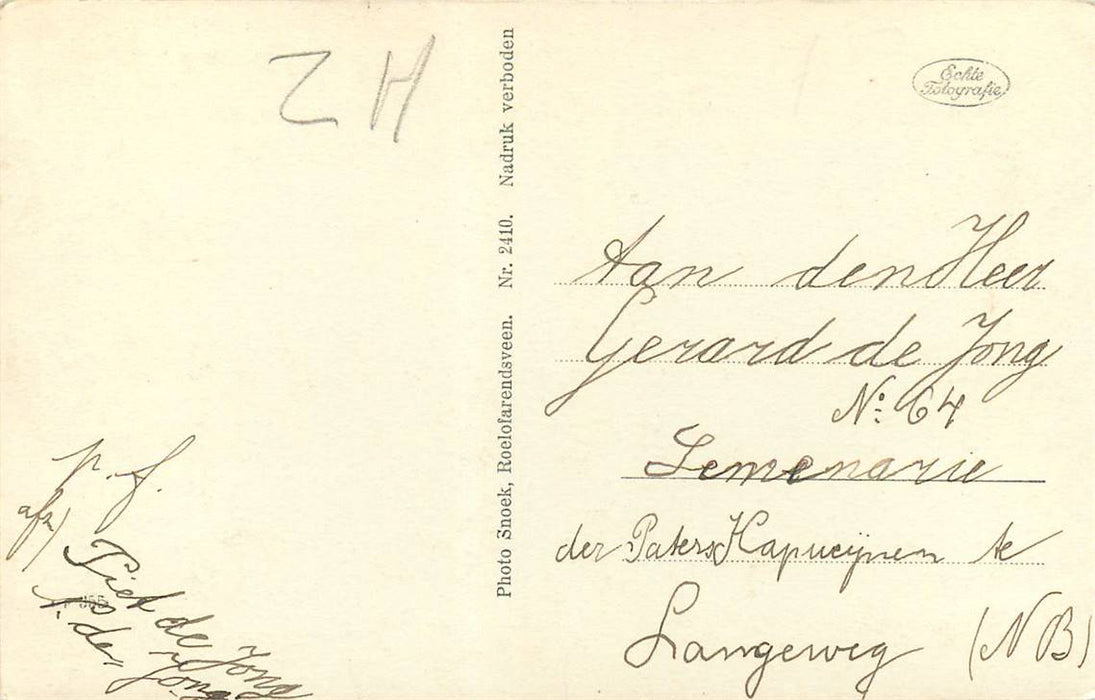 ZH
p. f.
afz)
Piet de Jong
P. de Jong
Photo Snoek, Roelofarendsveen. Nr. 2410. Nadruk verboden
Echte
Fotografie
Aan den Heer
Gerard de Jong
No: 64
Semenarie
der Paters Kapucijnen te
Langeweg (NB)